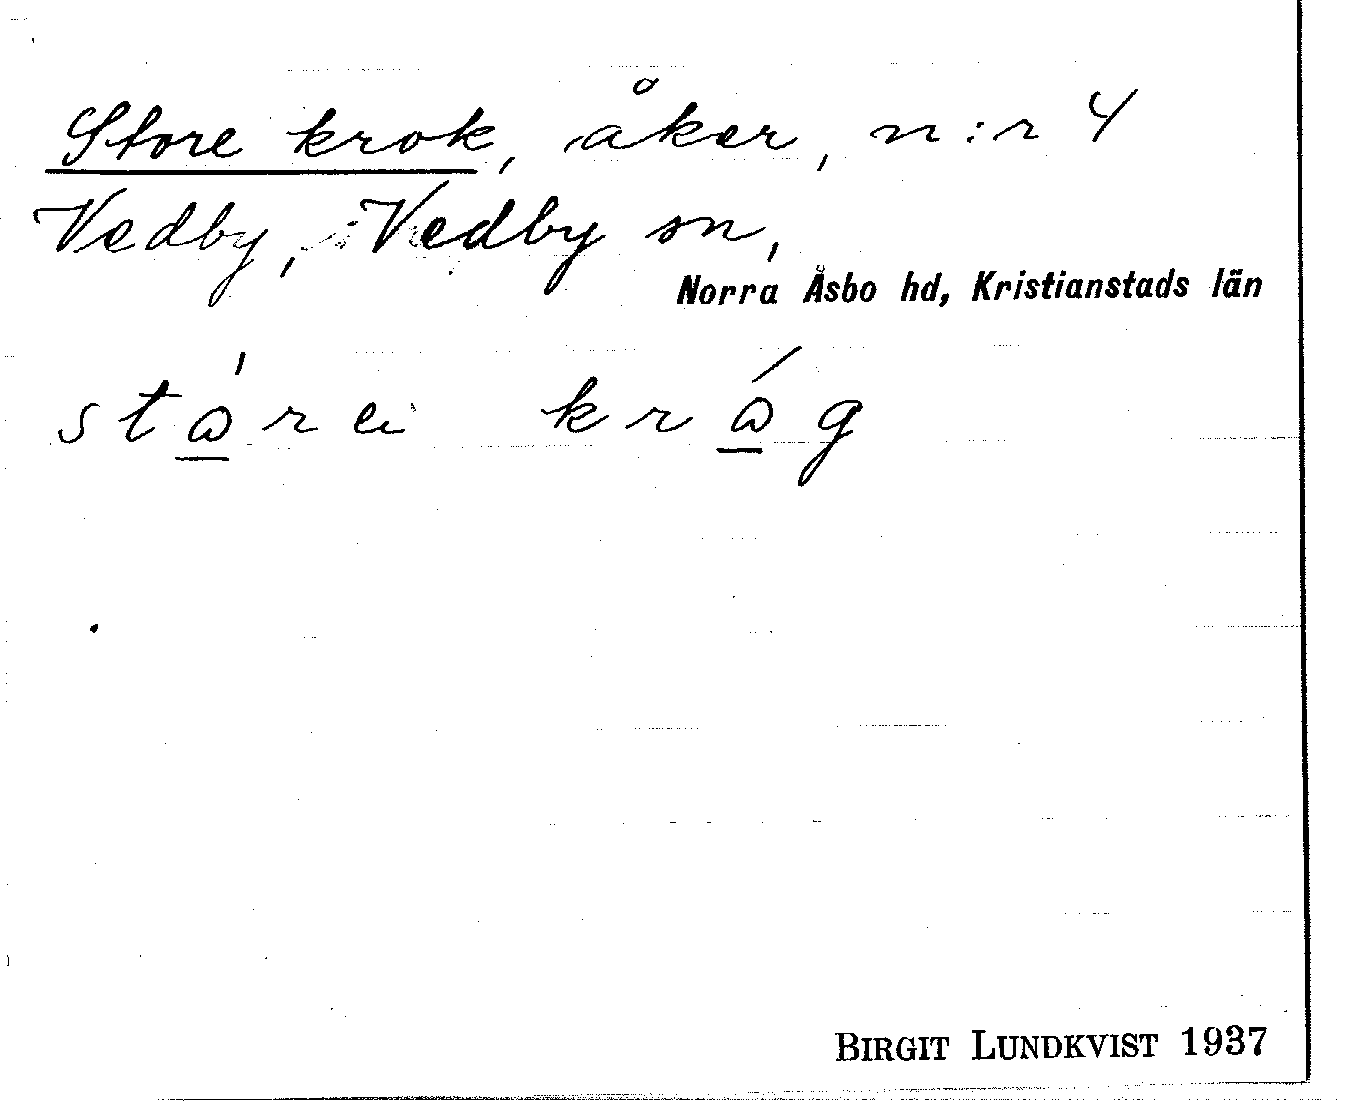 Store krok, åker, n:r 4
Vedby, Vedby sn,
Norra Åsbo hd, Kristianstads län
BIRGIT LUNDKVIST 1937